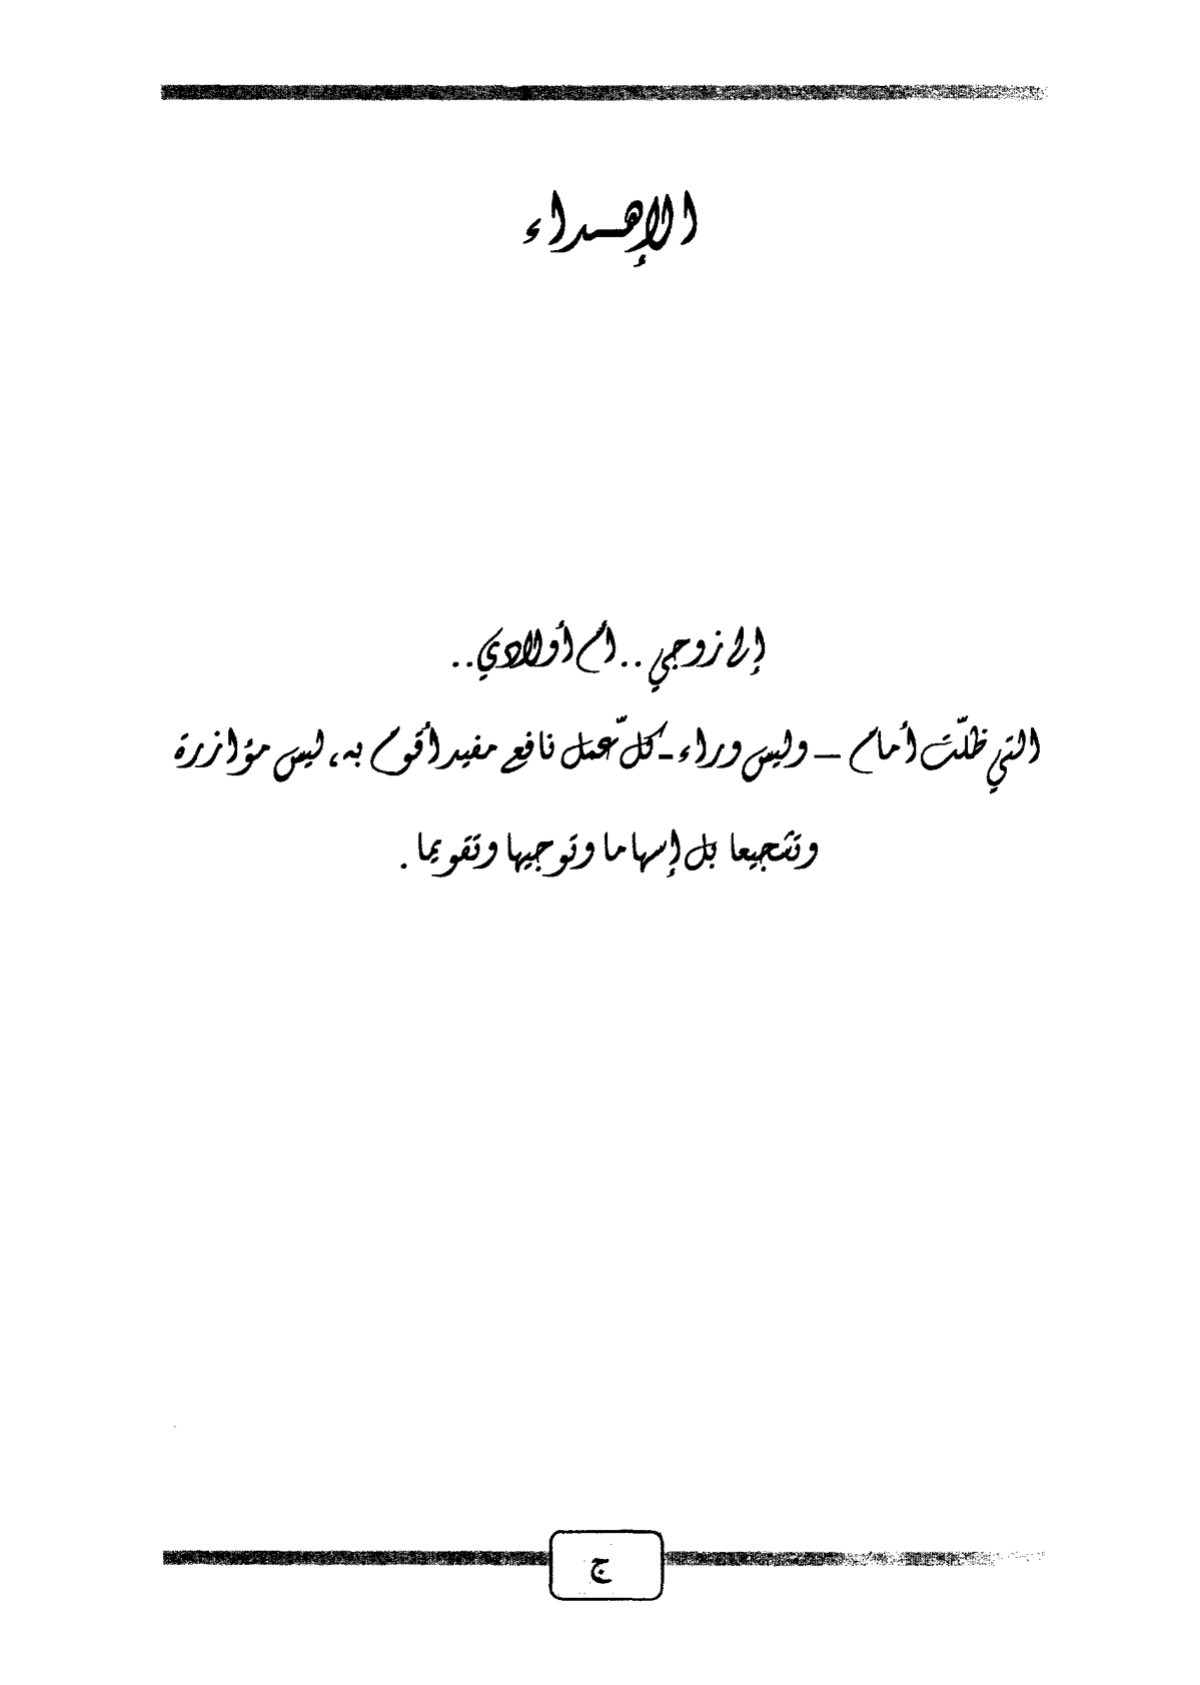 الإهـداء
إلى زوجي .. أم أولادي ..
التي ظلّت أمام – وليس وراء - كلّ عمل نافع مفيد أقوم به، ليس مؤازرة
وتشجيعا بل إسهاما وتوجيها وتقويما .
ج